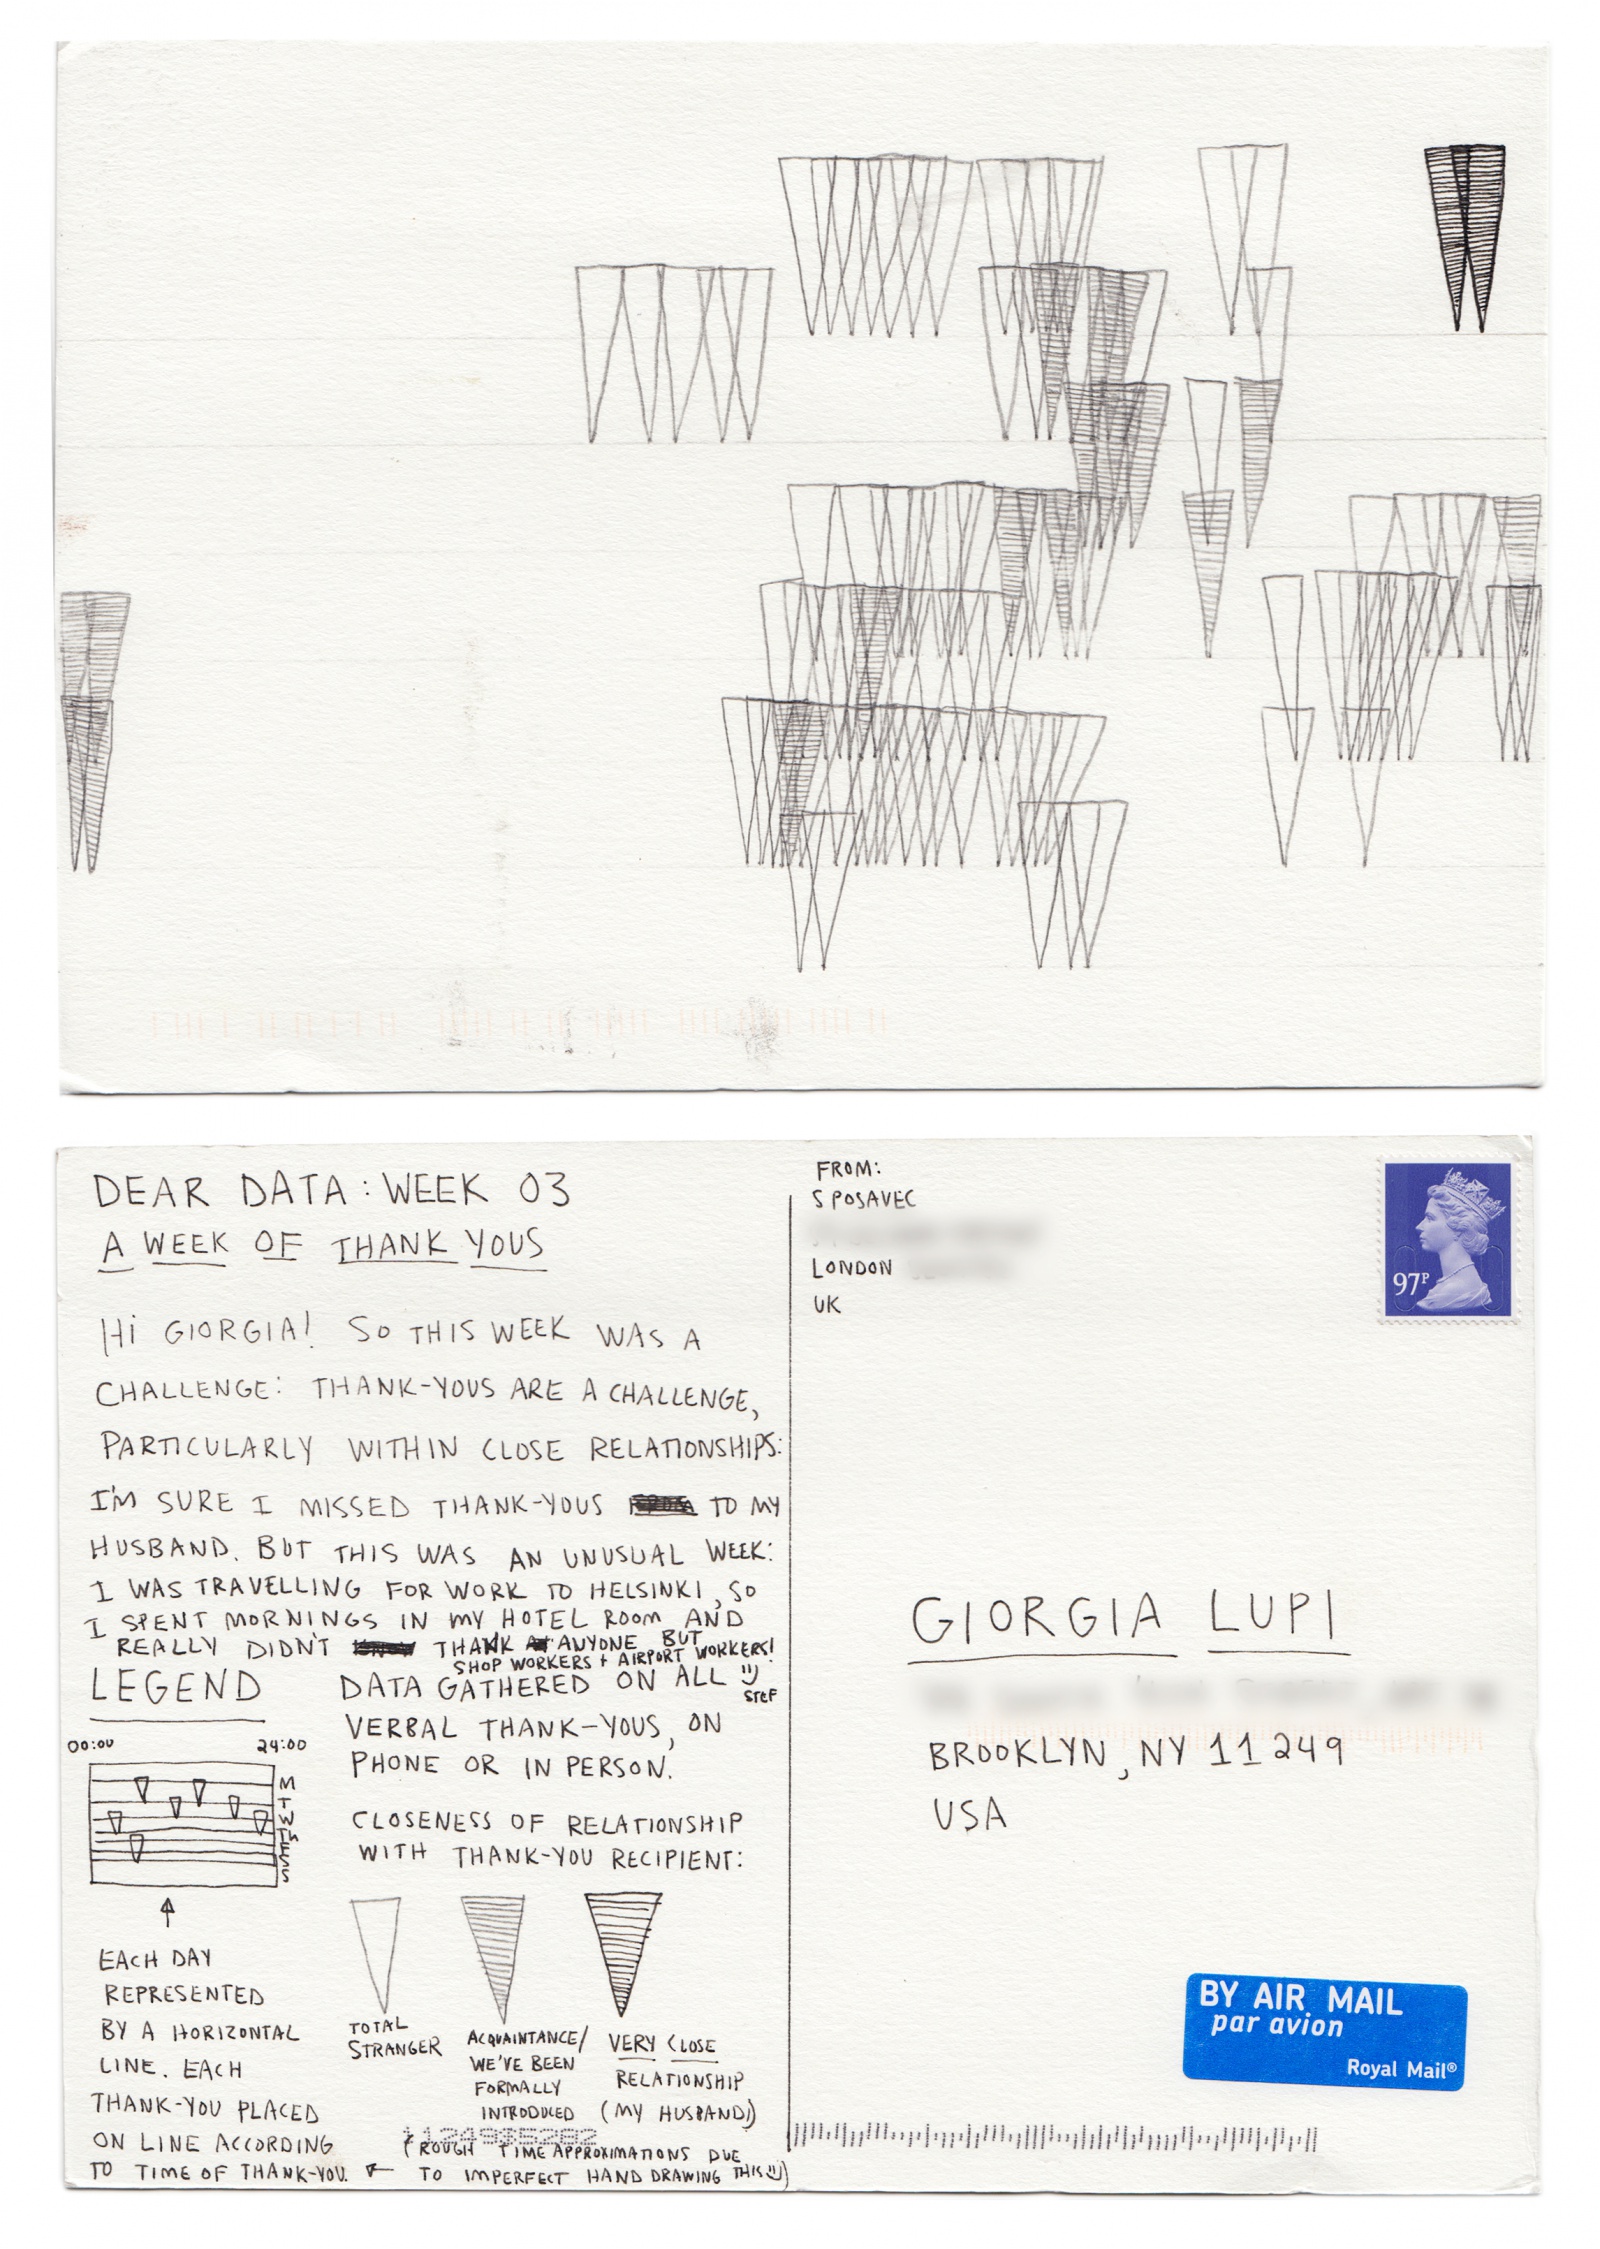 DEAR DATA: WEEK 03
A WEEK OF THANK YOUS
HI GIORGIA! SO THIS WEEK WAS A
CHALLENGE: THANK-YOUS ARE A CHALLENGE,
PARTICULARLY WITHIN CLOSE RELATIONSHIPS:
I'M SURE I MISSED THANK-YOUS TO MY
HUSBAND. BUT THIS WAS AN UNUSUAL WEEK:
I WAS TRAVELLING FOR WORK TO HELSINKI, SO
I SPENT MORNINGS IN MY HOTEL ROOM AND
REALLY DIDN'T THANK ANYONE BUT
SHOP WORKERS + AIRPORT WORKERS!
STEF
LEGEND
00:00 24:00
M
T
W
Th
F
S
S
EACH DAY
REPRESENTED
BY A HORIZONTAL
LINE. EACH
THANK-YOU PLACED
ON LINE ACCORDING
TO TIME OF THANK-YOU.
(ROUGH TIME APPROXIMATIONS DUE
TO IMPERFECT HAND DRAWING THIS :))
DATA GATHERED ON ALL
VERBAL THANK-YOUS, ON
PHONE OR IN PERSON.
CLOSENESS OF RELATIONSHIP
WITH THANK-YOU RECIPIENT:
TOTAL
STRANGER
ACQUAINTANCE/
WE'VE BEEN
FORMALLY
INTRODUCED
VERY CLOSE
RELATIONSHIP
(MY HUSBAND)
FROM:
S POSAVEC
LONDON
UK
97P
GIORGIA LUPI
BROOKLYN, NY 11249
USA
BY AIR MAIL
par avion
Royal Mail®